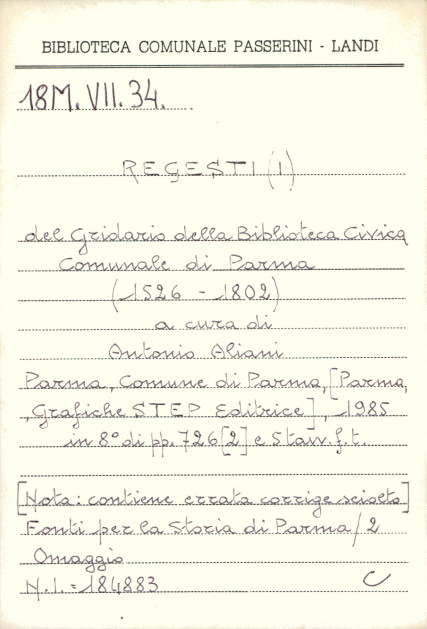 BIBLIOTECA COMUNALE PASSERINI - LANDI
18M.VII.34.
REGESTI (I)
del Gridario della Biblioteca Civica
Comunale di Parma
(1526 - 1802)
a cura di
Antonio Aliani
Parma, Comune di Parma, [Parma,
, Grafiche STEP Editrice], 1985
in 8° di pp. 726 [2] e 5 tavv. f. t.
[Nota: contiene errata corrige sciolto]
Fonti per la Storia di Parma / 2
Omaggio
N.I. = 184883
C